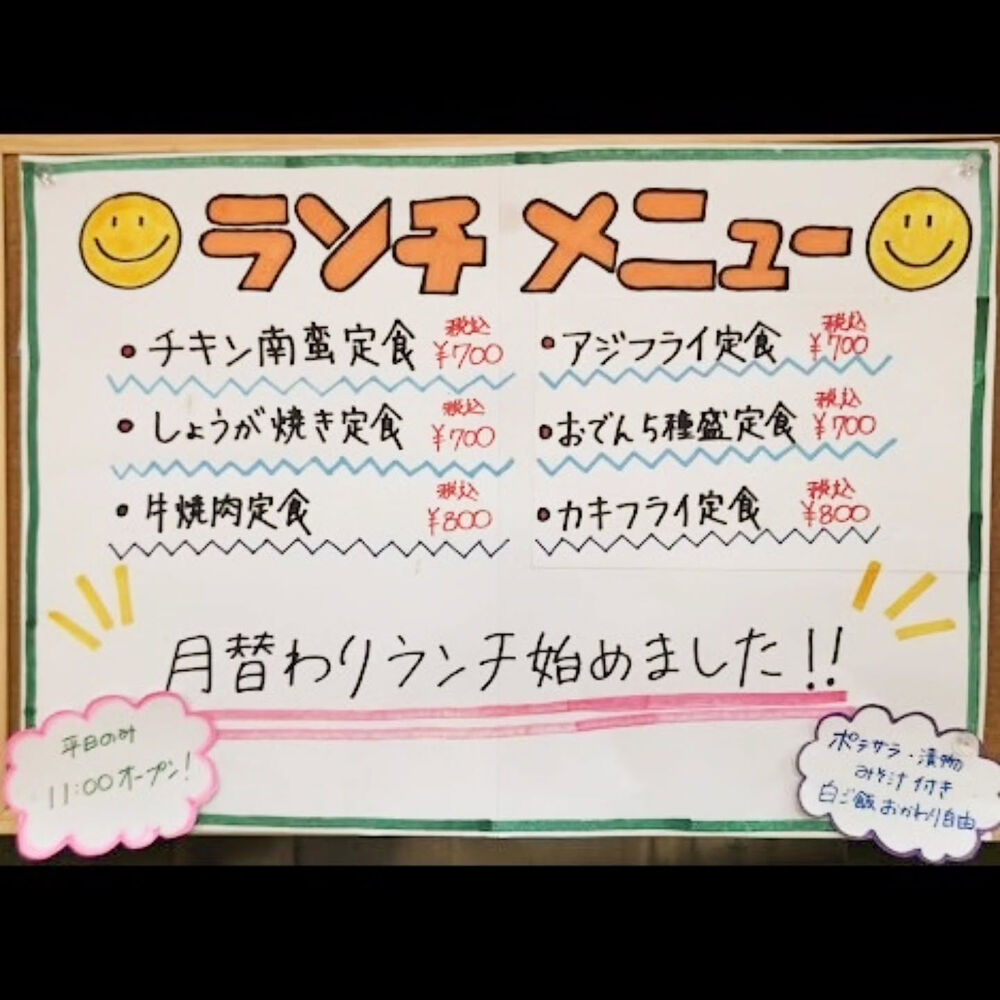 ランチメニュー
・チキン南蛮定食 税込 ¥700
・しょうが焼き定食 税込 ¥700
・牛焼肉定食 税込 ¥800
・アジフライ定食 税込 ¥700
・おでん5種盛定食 税込 ¥700
・カキフライ定食 税込 ¥800
月替わりランチ始めました!!
平日のみ
11:00オープン!
ポテサラ・漬物
みそ汁付き
白ご飯おかわり自由